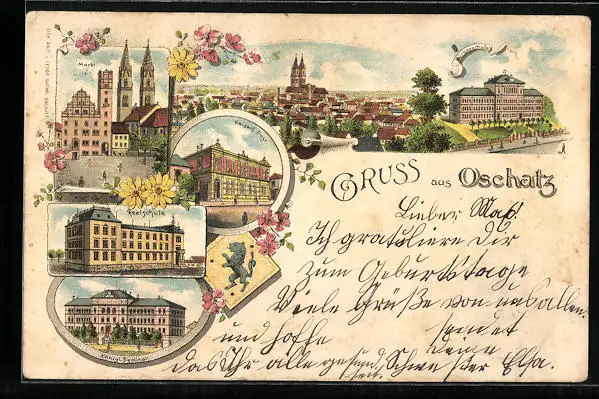 Markt
Kaiserl. Post
Realschule
Königl. Seminar
GRUSS aus Oschatz
Lieber Max!
Ich gratuliere Dir
zum Geburtstage
Viele Grüße von uns allen.
und hoffe sendet
das Ihr alle gesund seit. Deine Schwester Elsa.